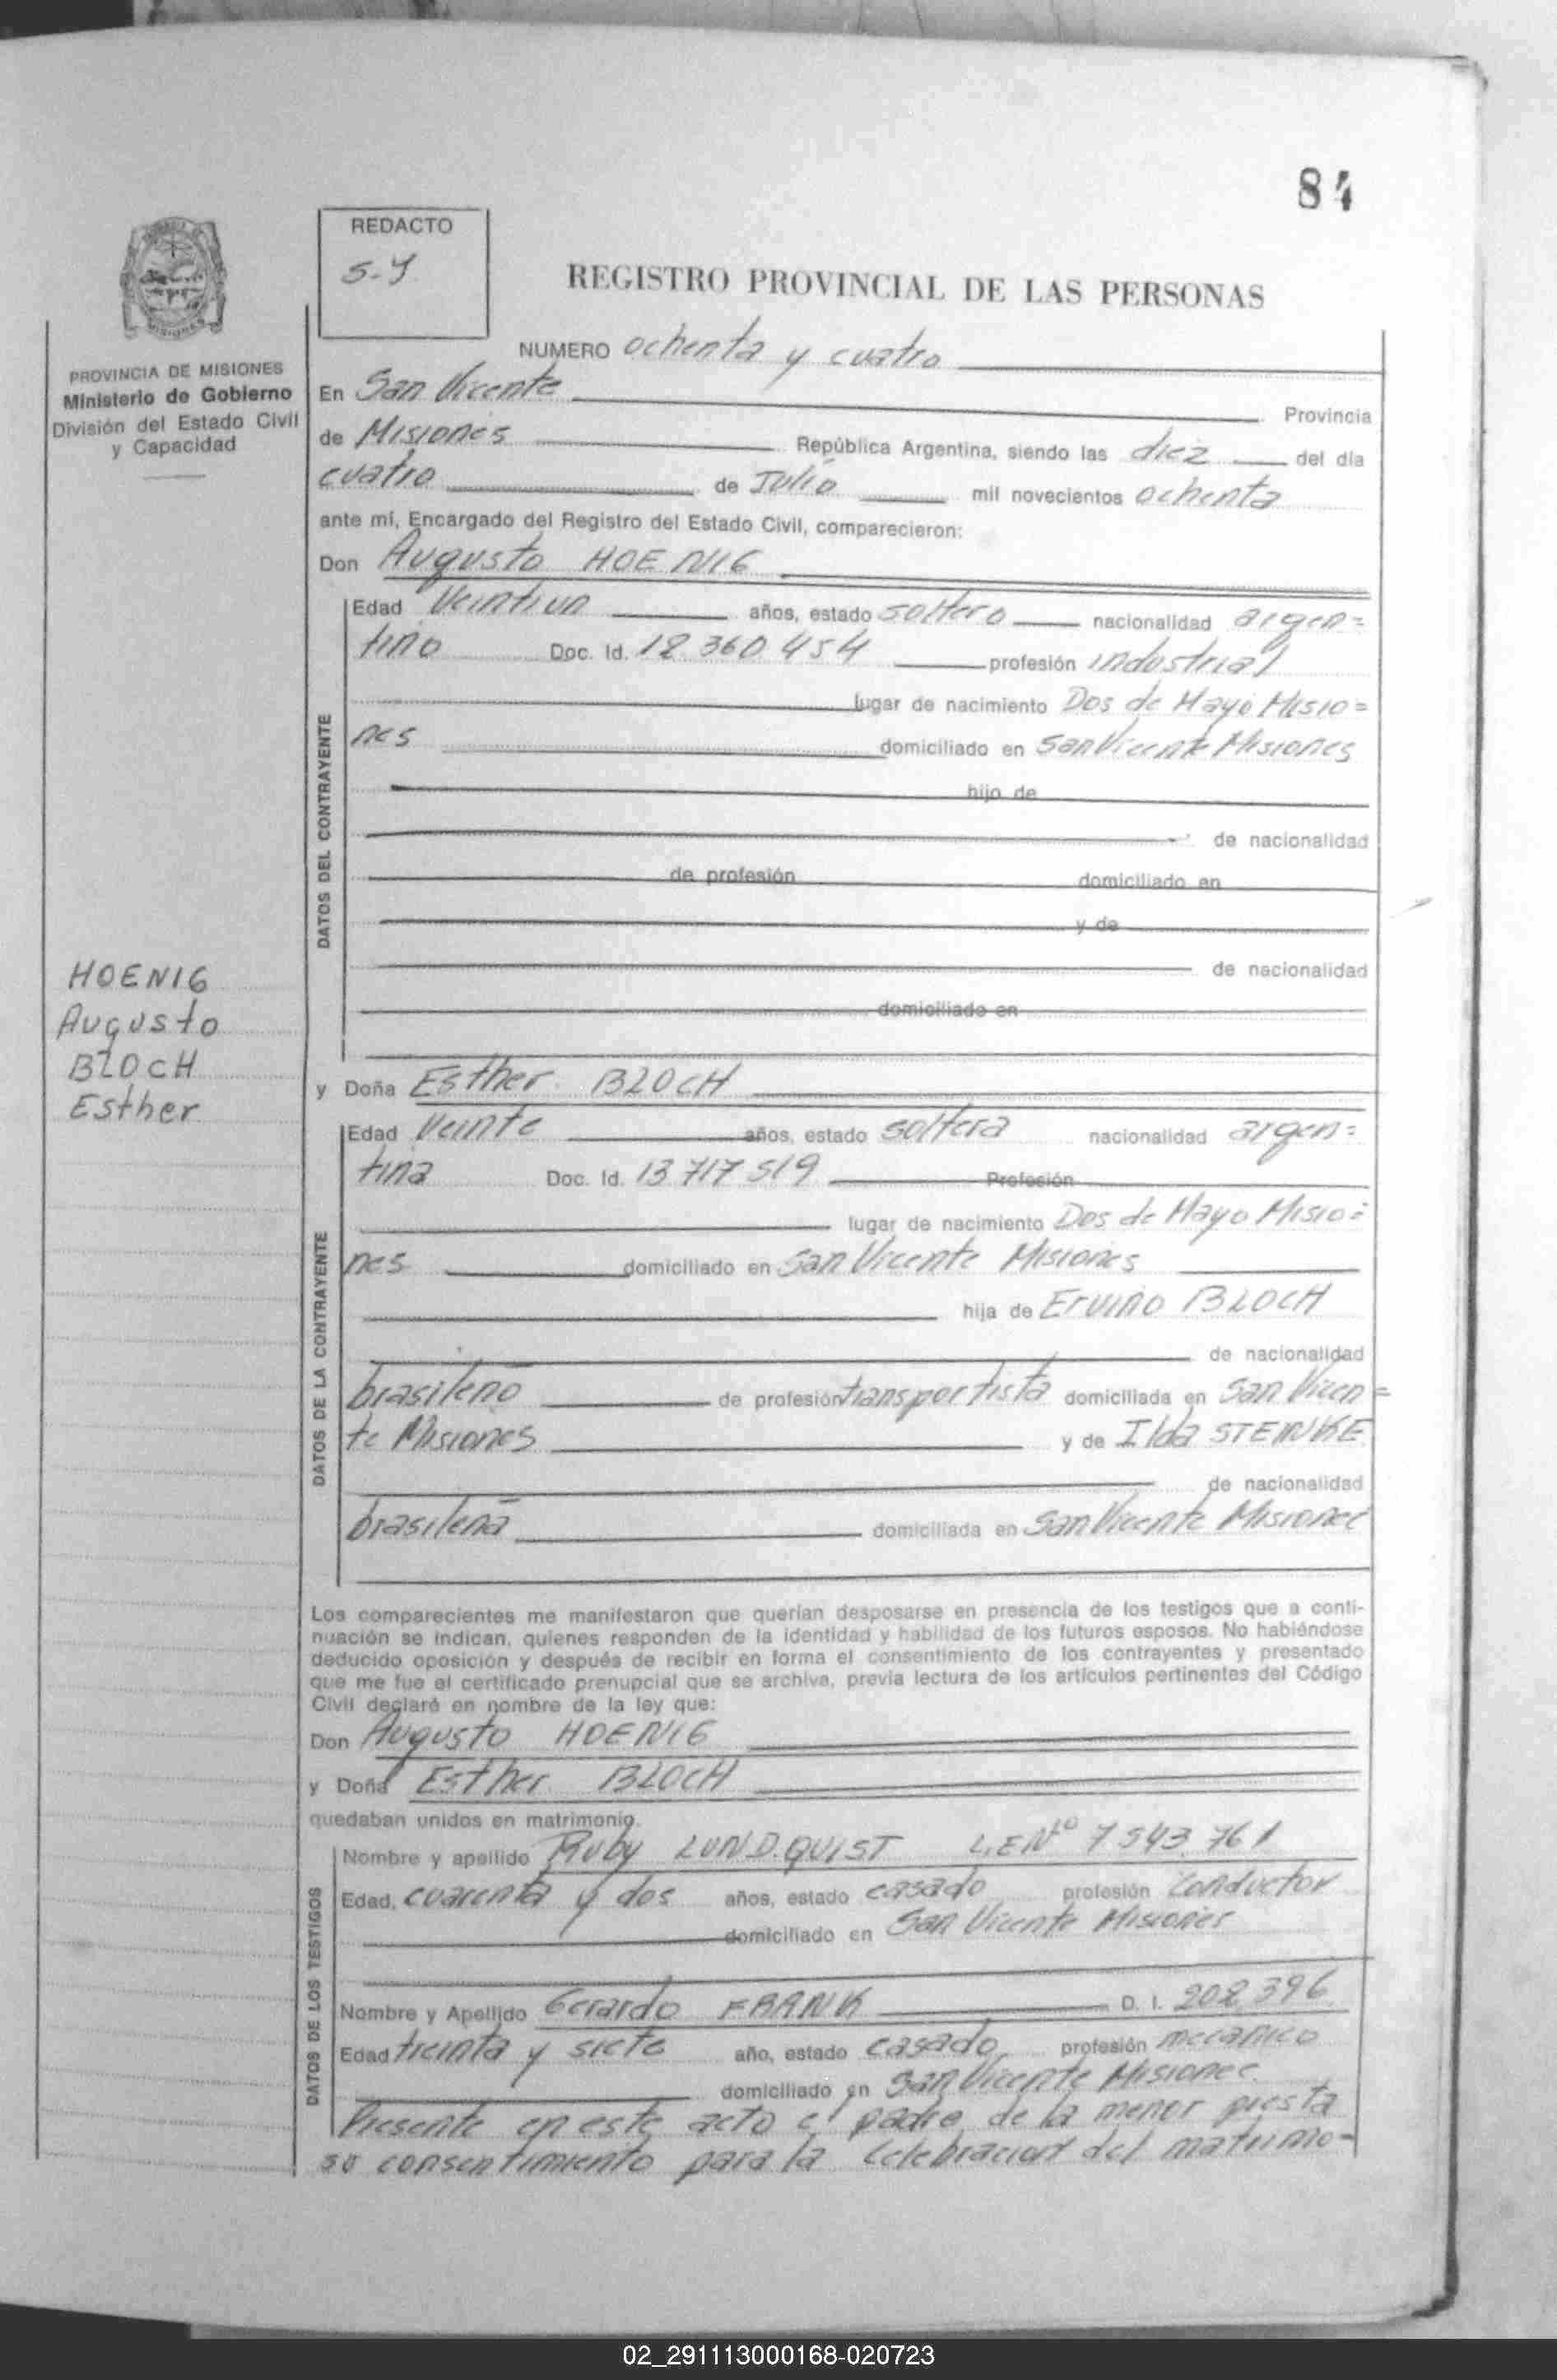 84
REDACTO
S-Y
REGISTRO PROVINCIAL DE LAS PERSONAS
PROVINCIA DE MISIONES
Ministerio de Gobierno
División del Estado Civil
y Capacidad
NUMERO ochenta y cuatro
En San Vicente Provincia
de Misiones República Argentina, siendo las diez del día
cuatro de Julio mil novecientos ochenta
ante mí, Encargado del Registro del Estado Civil, comparecieron:
Don Augusto HOENIG
DATOS DEL CONTRAYENTE
Edad Veintiun años, estado soltero nacionalidad argen=
tino Doc. Id. 12.360.454 profesión industrial
lugar de nacimiento Dos de Mayo Misio=
nes domiciliado en San Vicente Misiones
hijo de
de nacionalidad
de profesión domiciliado en
y de
de nacionalidad
domiciliado en
HOENIG
Augusto
BLOCH
Esther
y Doña Esther BLOCH
DATOS DE LA CONTRAYENTE
Edad Veinte años, estado soltera nacionalidad argen=
tina Doc. Id. 13.717.519 Profesión
lugar de nacimiento Dos de Mayo Misio=
nes domiciliado en San Vicente Misiones
hija de Ervino BLOCH
de nacionalidad
brasileño de profesión transportista domiciliada en San Vicen=
te Misiones y de Ilda STEINKE
de nacionalidad
brasileña domiciliada en San Vicente Misiones
Los comparecientes me manifestaron que querían desposarse en presencia de los testigos que a conti-
nuación se indican, quienes responden de la identidad y habilidad de los futuros esposos. No habiéndose
deducido oposición y después de recibir en forma el consentimiento de los contrayentes y presentado
que me fue el certificado prenupcial que se archiva, previa lectura de los artículos pertinentes del Código
Civil declaré en nombre de la ley que:
Don Augusto HOENIG
y Doña Esther BLOCH
quedaban unidos en matrimonio.
DATOS DE LOS TESTIGOS
Nombre y apellido Ruby LUNDQUIST L.E Nº 7.543.761
Edad, cuarenta y dos años, estado casado profesión conductor
domiciliado en San Vicente Misiones
Nombre y Apellido Gerardo FRANK D. I. 202.396
Edad treinta y siete año, estado casado profesión mecanico
domiciliado en San Vicente Misiones
Presente en este acto el padre de la menor presta
su consentimiento para la celebracion del matrimo-
02_291113000168-020723